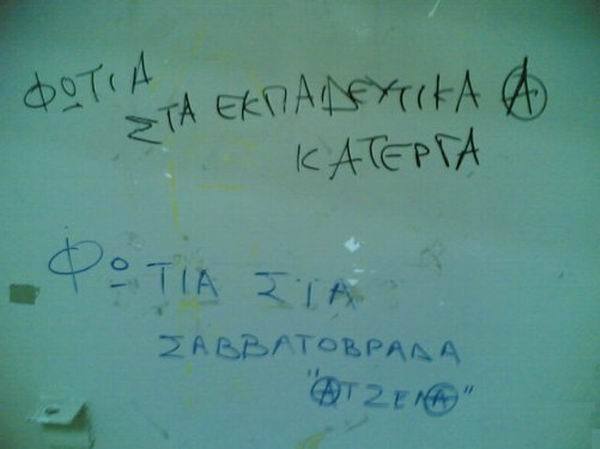 ΦΩΤΙΑ
ΣΤΑ ΕΚΠΑΙΔΕΥΤΙΚΑ Α
ΚΑΤΕΡΓΑ
ΦΩΤΙΑ ΣΤΑ
ΣΑΒΒΑΤΟΒΡΑΔΑ
"ΑΤΖΕΝΑ"